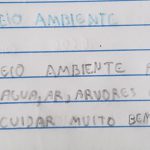 EIO AMBIENTE
EIO AMBIENTE
AGUA, AR, ARVORES
CUIDAR MUITO BEM